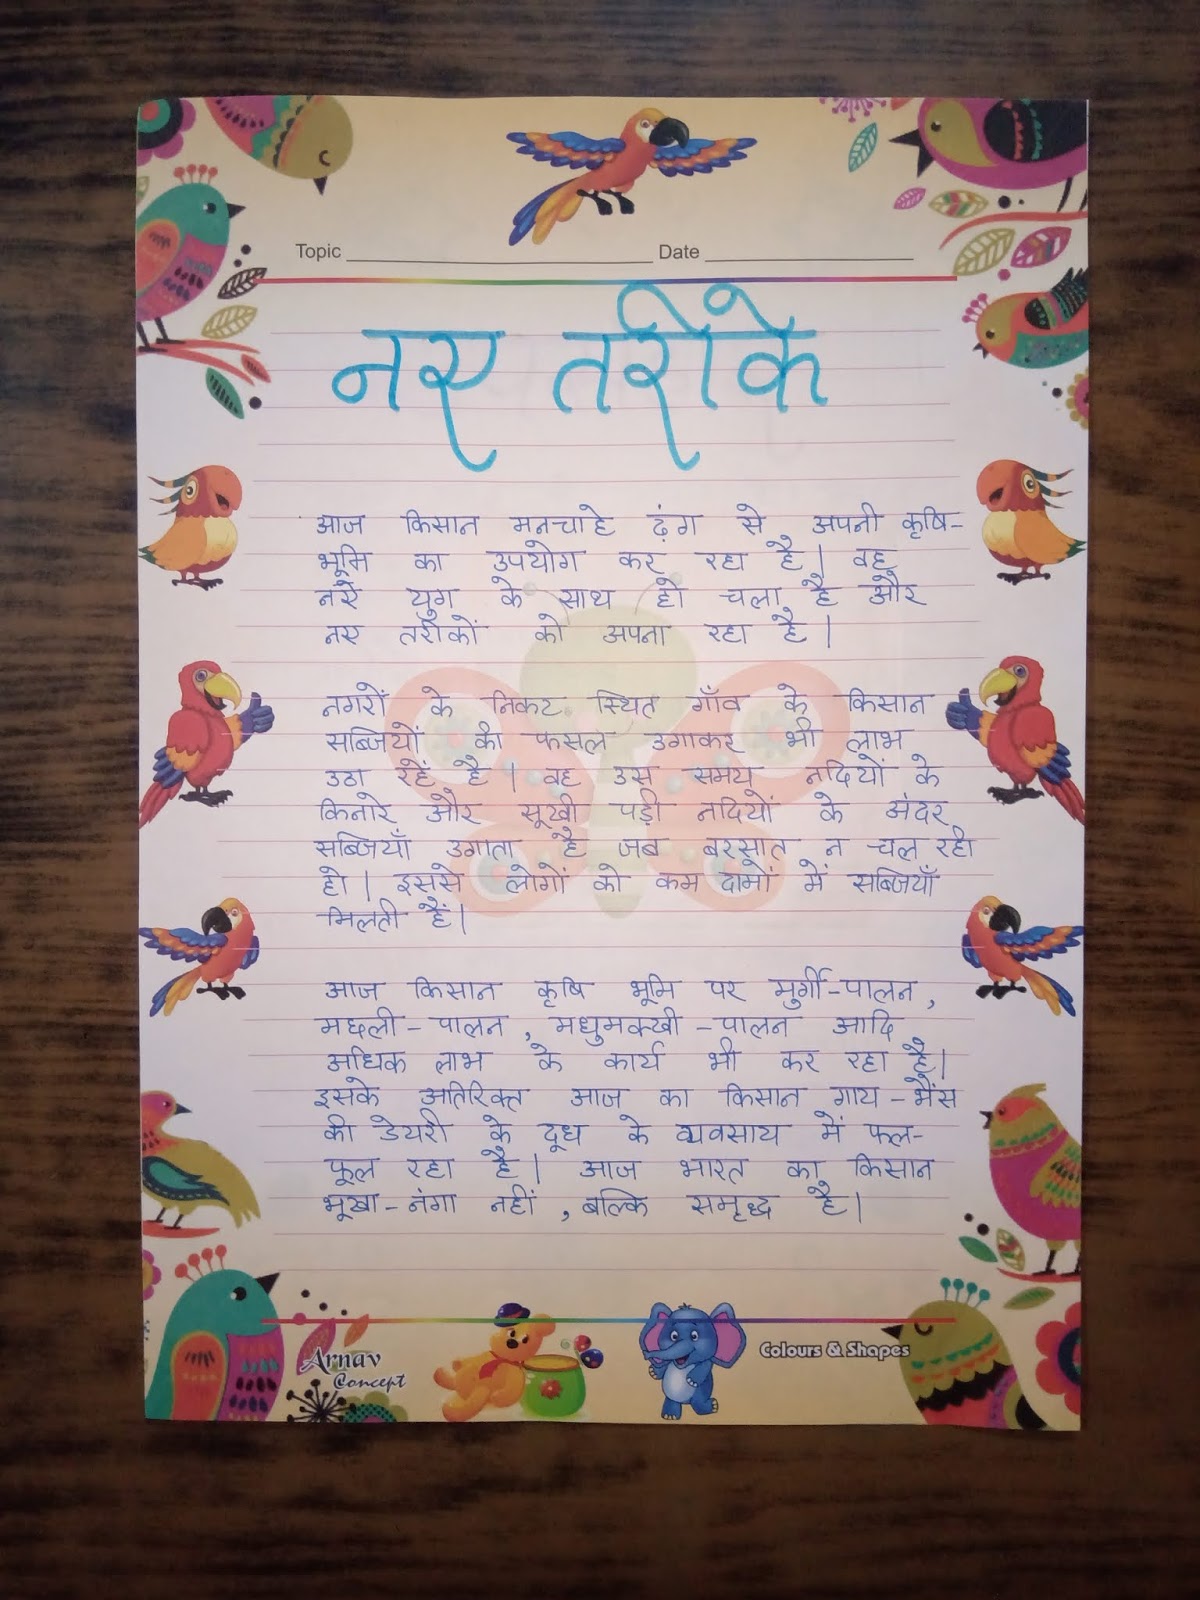 Topic Date
नए तरीके
आज किसान मनचाहे ढ़ंग से अपनी कृषि-
भूमि का उपयोग कर रहा है। वह
नऐ युग के साथ हो चला है और
नए तरीकों को अपना रहा है।
नगरों के निकट स्थित गाँव के किसान
सब्जियों की फसल उगाकर भी लाभ
उठा रहें है। वह उस समय नदियों के
किनारे और सूखी पड़ी नदियों के अंदर
सब्जियाँ उगाता है जब बरसात न चल रही
हो। इससे लोगों को कम दामों में सब्जियाँ
मिलती हैं।
आज किसान कृषि भूमि पर मुर्गी-पालन,
मछली-पालन, मधुमक्खी-पालन आदि
अधिक लाभ के कार्य भी कर रहा है।
इसके अतिरिक्त आज का किसान गाय-भैंस
की डेयरी के दूध के व्यवसाय में फल-
फूल रहा है। आज भारत का किसान
भूखा-नंगा नहीं, बल्कि समृद्ध है।
Arnav
Concept
Colours & Shapes